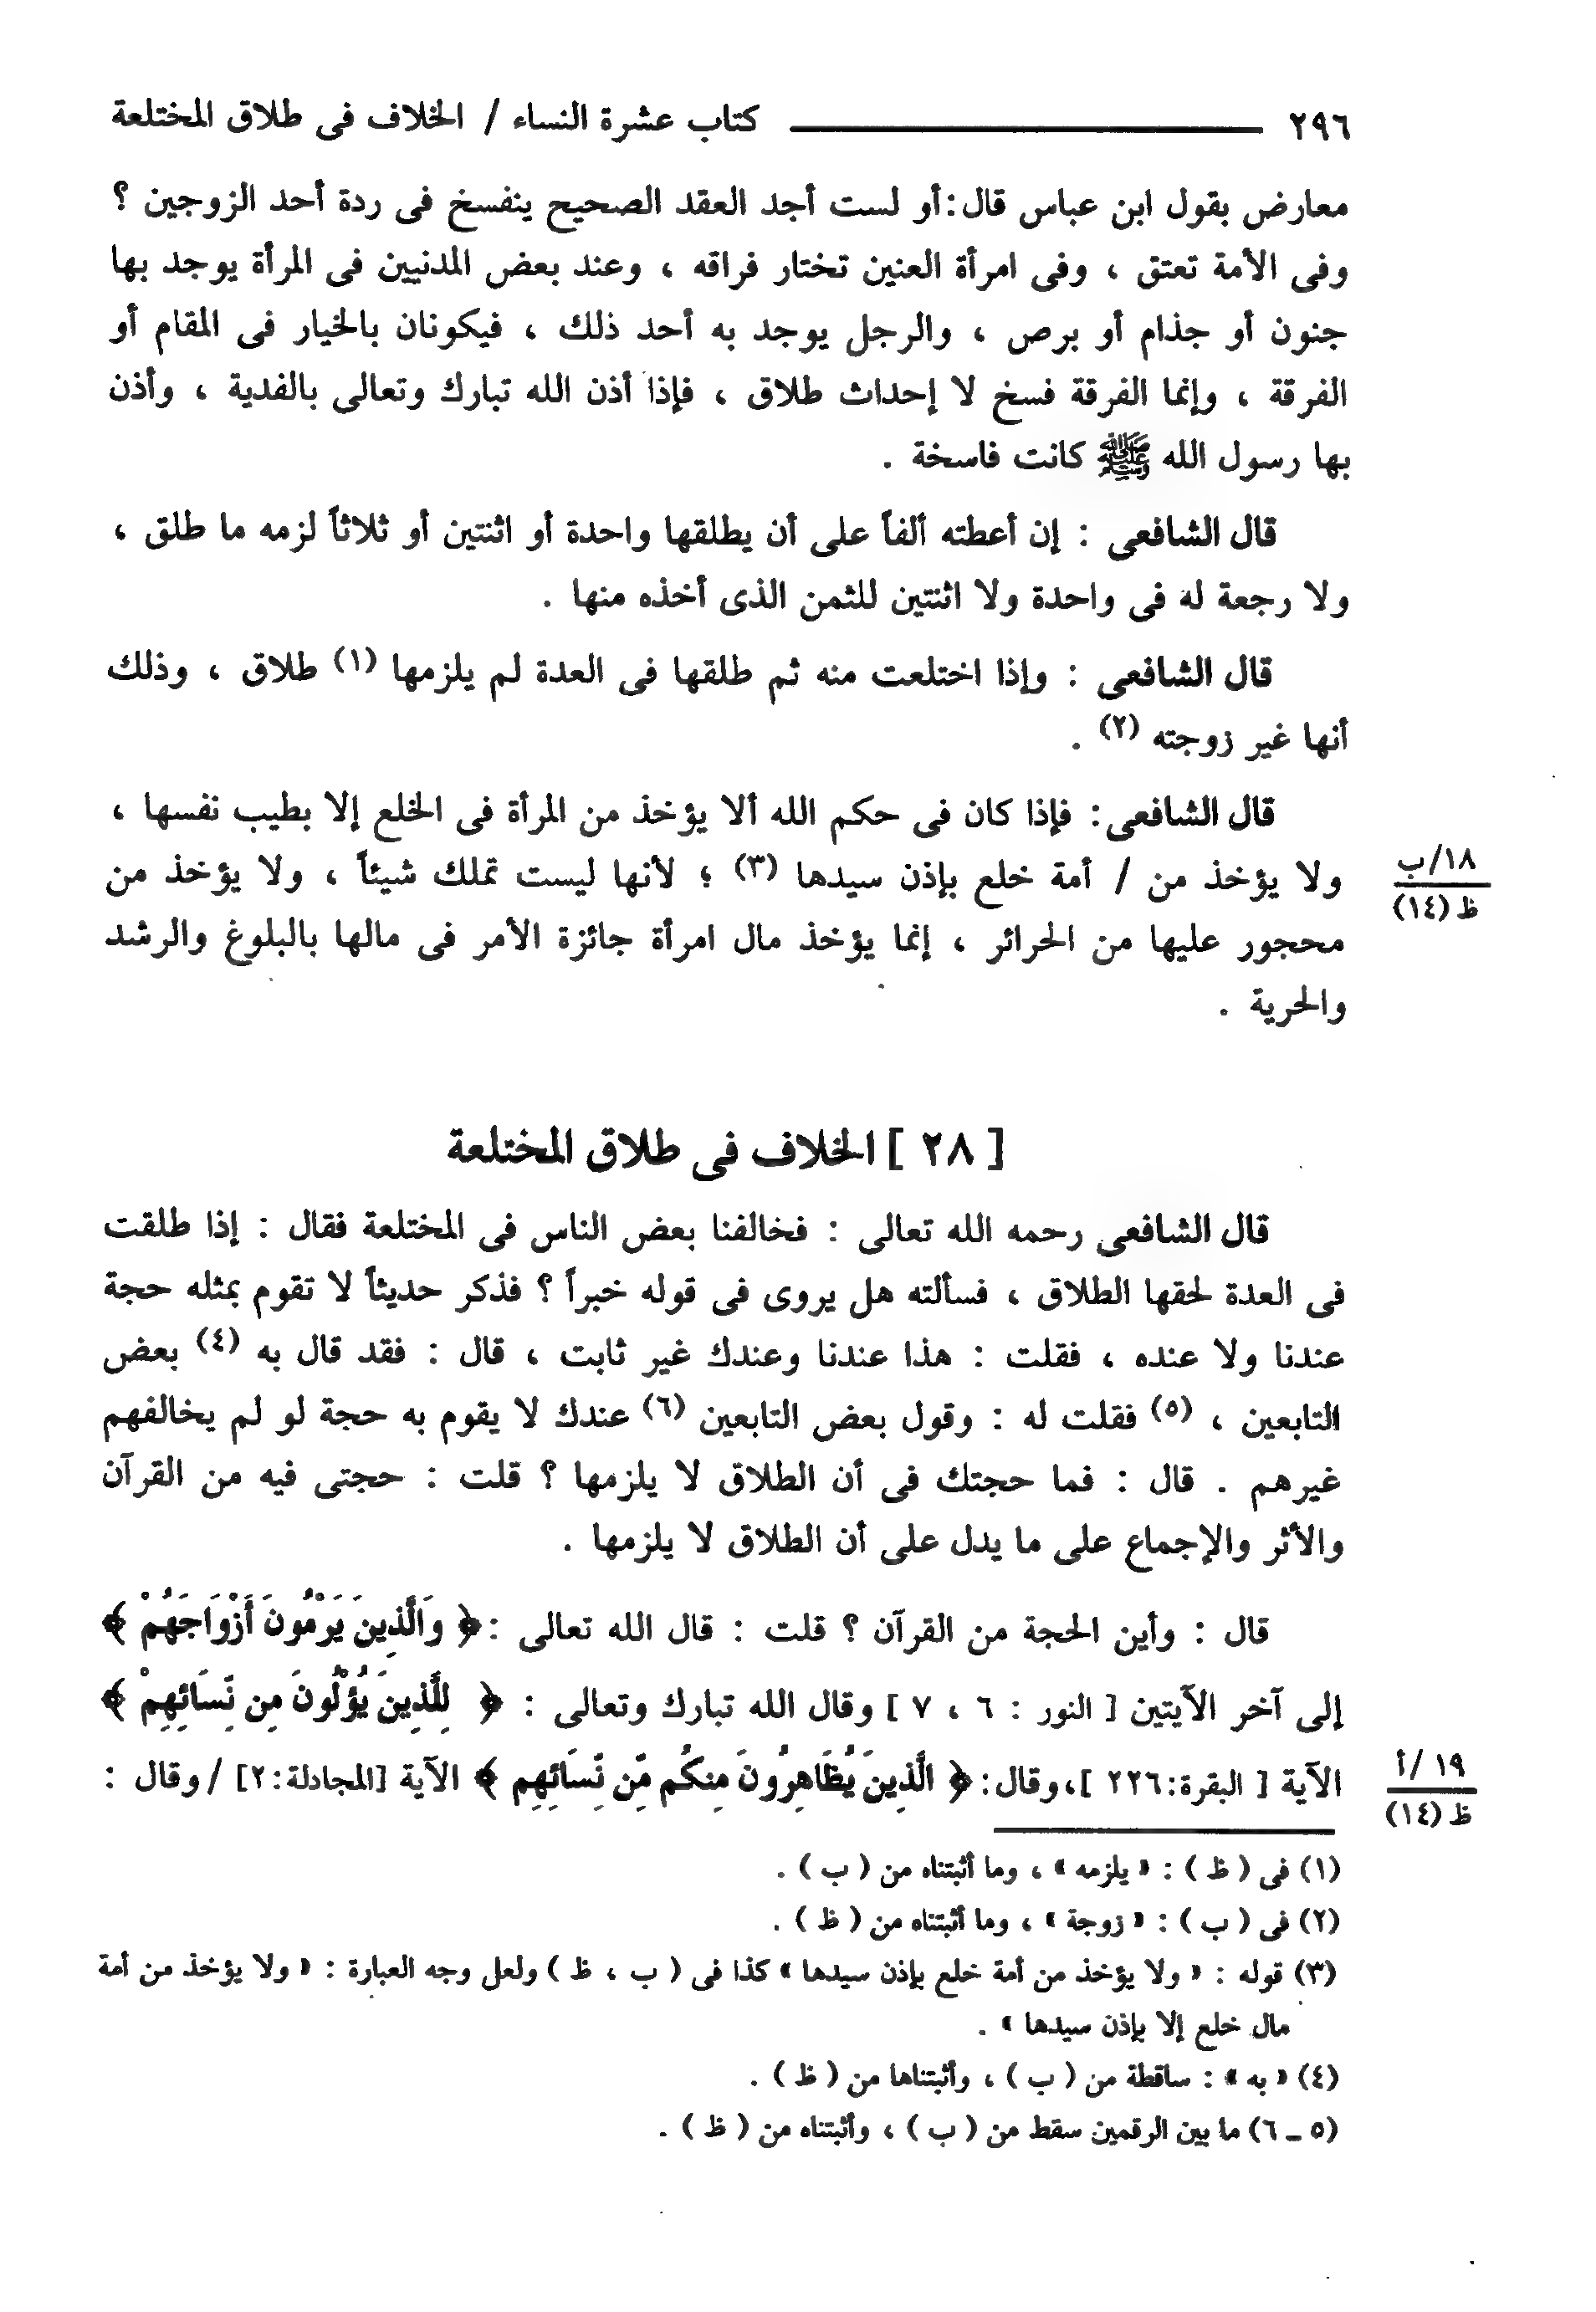 ٢٩٦ كتاب عشرة النساء / الخلاف فى طلاق المختلعة
معارض بقول ابن عباس قال: أو لست أجد العقد الصحيح ينفسخ فى ردة أحد الزوجين ؟
وفى الأمة تعتق ، وفى امرأة العنين تختار فراقه ، وعند بعض المدنيين فى المرأة يوجد بها
جنون أو جذام أو برص ، والرجل يوجد به أحد ذلك ، فيكونان بالخيار فى المقام أو
الفرقة ، وإنما الفرقة فسخ لا إحداث طلاق ، فإذا أذن الله تبارك وتعالى بالفدية ، وأذن
بها رسول الله ﷺ كانت فاسخة .
قال الشافعى : إن أعطته ألفاً على أن يطلقها واحدة أو اثنتين أو ثلاثاً لزمه ما طلق ،
ولا رجعة له فى واحدة ولا اثنتين للثمن الذى أخذه منها .
قال الشافعى : وإذا اختلعت منه ثم طلقها فى العدة لم يلزمها (١) طلاق ، وذلك
أنها غير زوجته (٢) .
قال الشافعى : فإذا كان فى حكم الله ألا يؤخذ من المرأة فى الخلع إلا بطيب نفسها ،
ولا يؤخذ من / أمة خلع بإذن سيدها (٣) ؛ لأنها ليست تملك شيئاً ، ولا يؤخذ من
١٨/ب
ظ (١٤)
محجور عليها من الحرائر ، إنما يؤخذ مال امرأة جائزة الأمر فى مالها بالبلوغ والرشد
والحرية .
[ ٢٨ ] الخلاف فى طلاق المختلعة
قال الشافعى رحمه الله تعالى : فخالفنا بعض الناس فى المختلعة فقال : إذا طلقت
فى العدة لحقها الطلاق ، فسألته هل يروى فى قوله خبراً ؟ فذكر حديثاً لا تقوم بمثله حجة
عندنا ولا عنده ، فقلت : هذا عندنا وعندك غير ثابت ، قال : فقد قال به (٤) بعض
التابعين ، (٥) فقلت له : وقول بعض التابعين (٦) عندك لا يقوم به حجة لو لم يخالفهم
غيرهم . قال : فما حجتك فى أن الطلاق لا يلزمها ؟ قلت : حجتى فيه من القرآن
والأثر والإجماع على ما يدل على أن الطلاق لا يلزمها .
قال : وأين الحجة من القرآن ؟ قلت : قال الله تعالى : ﴿ وَالَّذِينَ يَرْمُونَ أَزْوَاجَهُمْ ﴾
إلى آخر الآيتين [ النور : ٦ ، ٧ ] وقال الله تبارك وتعالى : ﴿ لِلَّذِينَ يُؤْلُونَ مِن نِّسَائِهِمْ ﴾
الآية [ البقرة: ٢٢٦ ]، وقال: ﴿ الَّذِينَ يُظَاهِرُونَ مِنكُم مِّن نِّسَائِهِم ﴾ الآية [المجادلة: ٢] / وقال :
١٩ /أ
ظ (١٤)
(١) فى ( ظ ) : « يلزمه » ، وما أثبتناه من ( ب ) .
(٢) فى ( ب ) : « زوجة » ، وما أثبتناه من ( ظ ) .
(٣) قوله : « ولا يؤخذ من أمة خلع بإذن سيدها » كذا فى ( ب ، ظ ) ولعل وجه العبارة : « ولا يؤخذ من أمة
مال خلع إلا بإذن سيدها » .
(٤) « به » : ساقطة من ( ب ) ، وأثبتناها من ( ظ ) .
(٥ ـ ٦) ما بين الرقمين سقط من ( ب ) ، وأثبتناه من ( ظ ) .